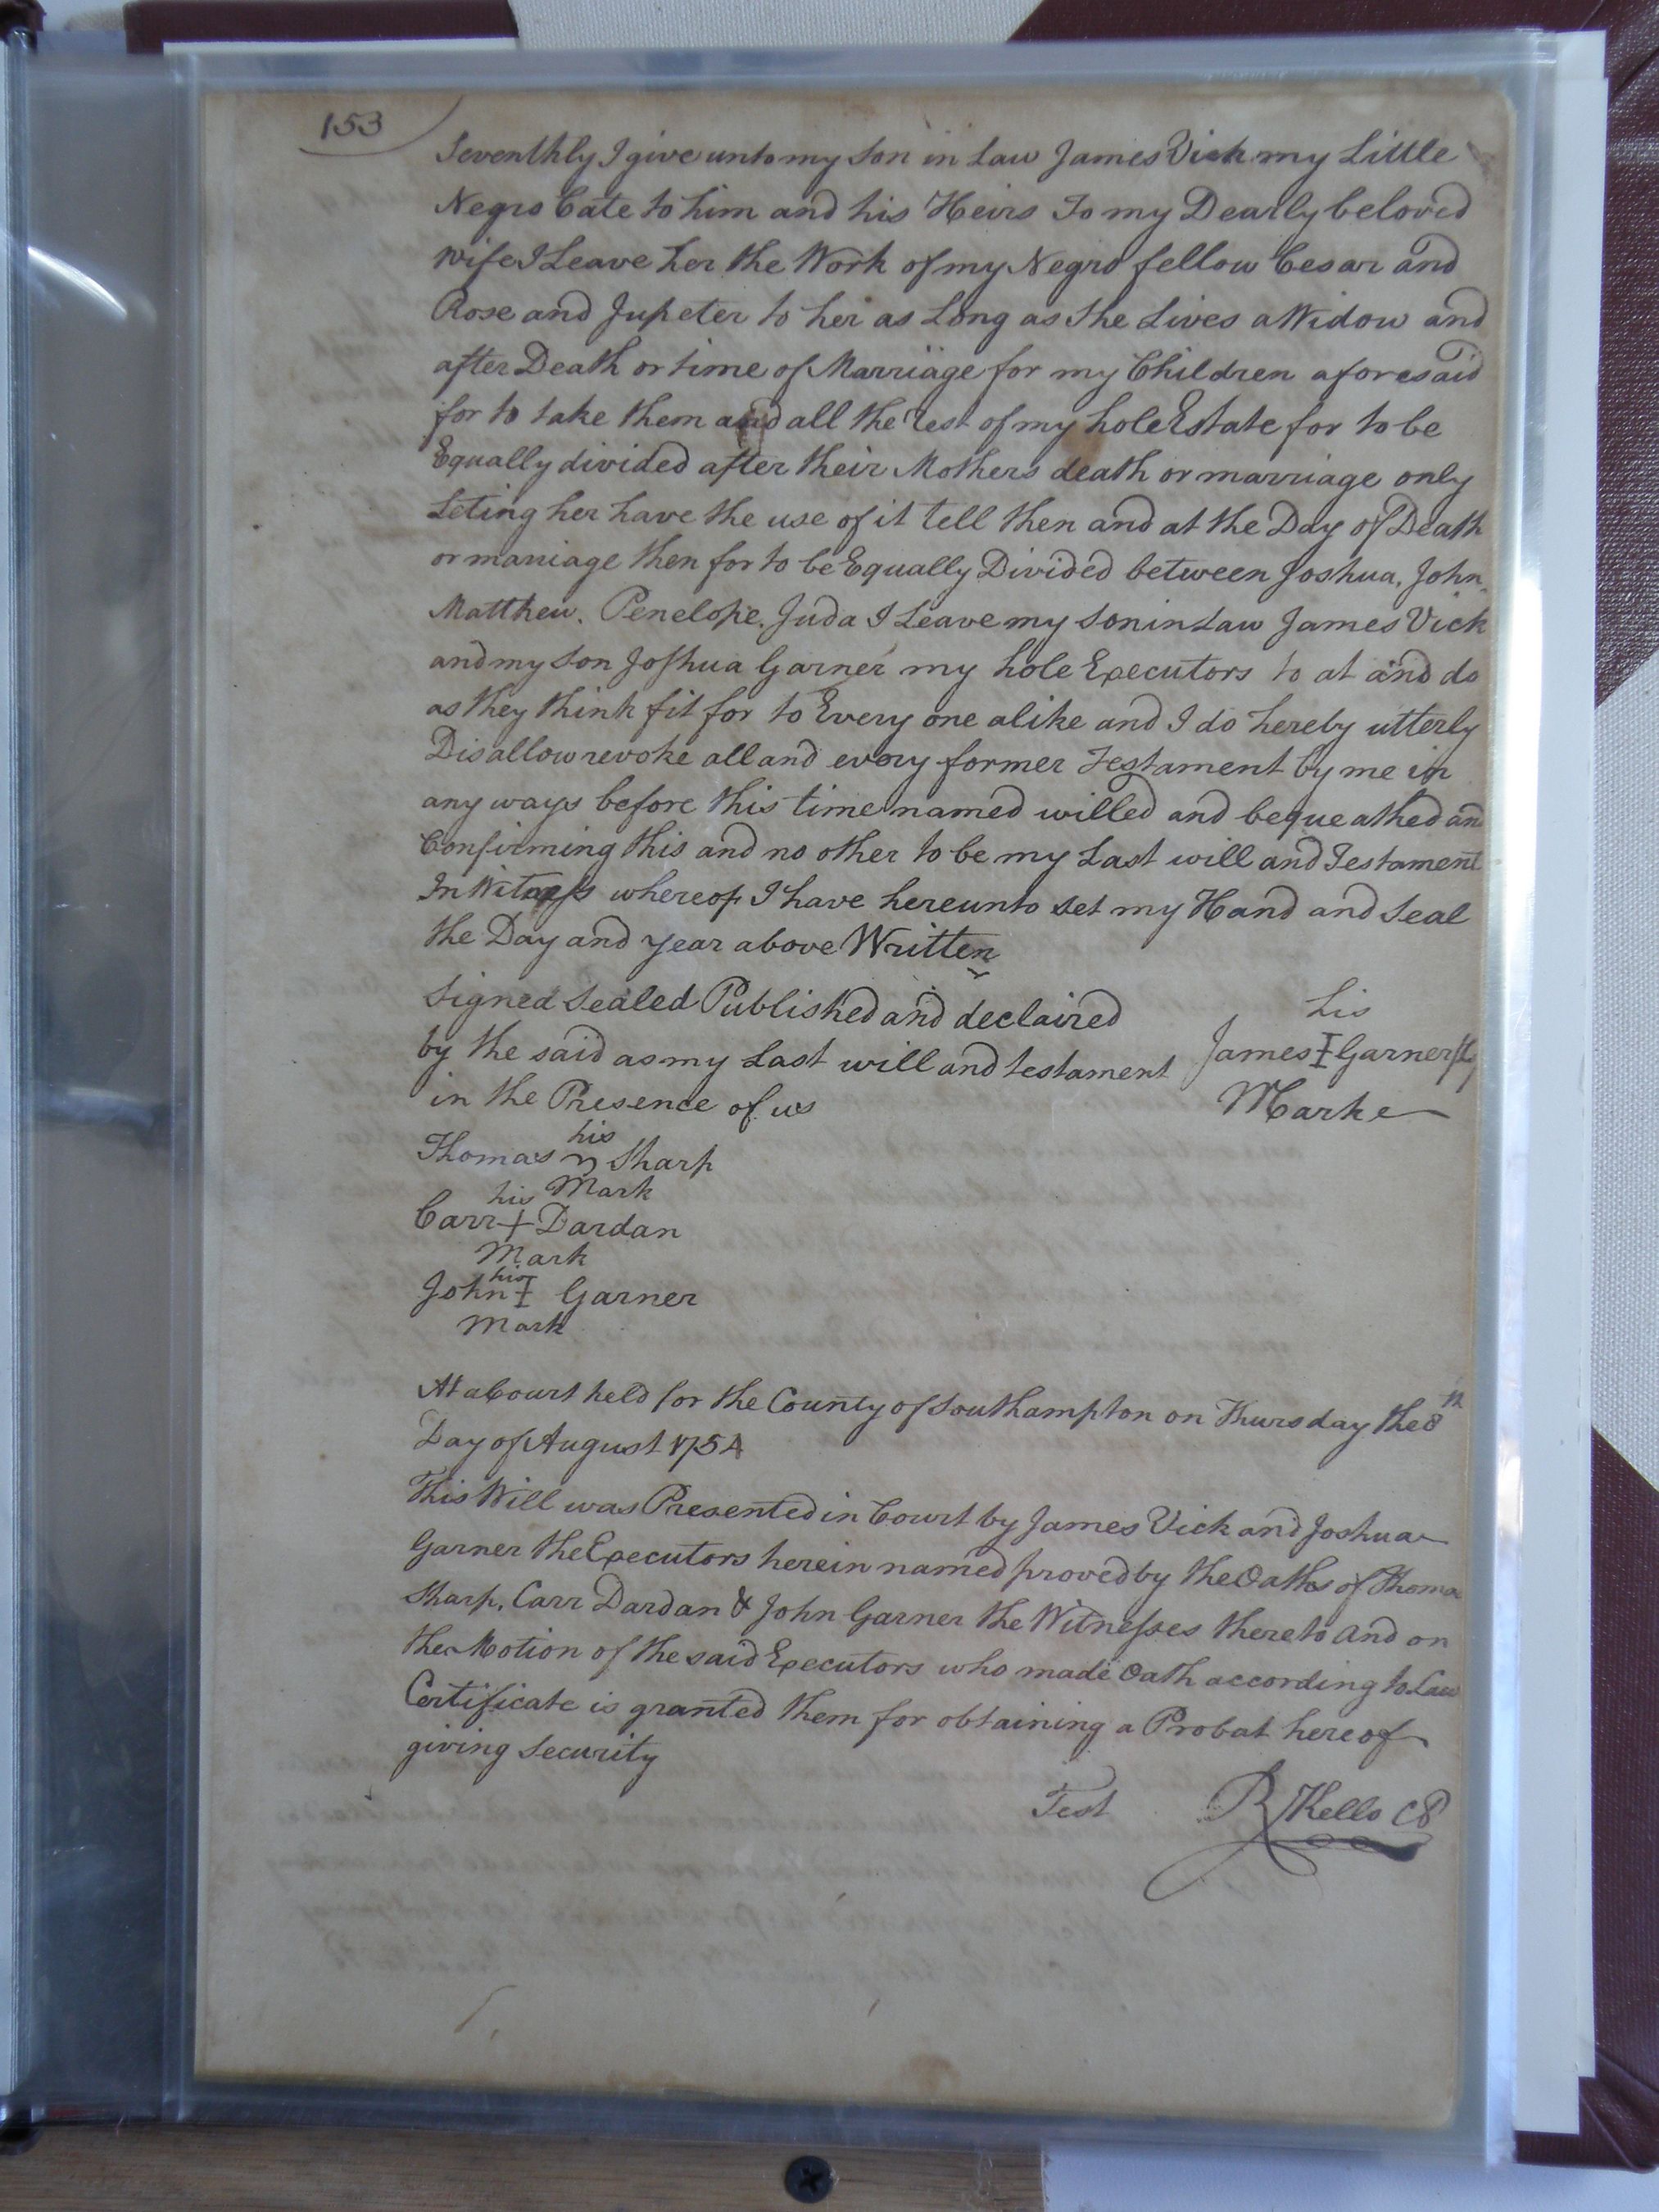 153
Seventhly I give unto my Son in Law James Vick my Little
Negro Cate to him and his Heirs To my Dearly beloved
wife I Leave her the Work of my Negro fellow Cesar and
Rose and Jupeter to her as Long as She Lives a Widow and
after Death or time of Marriage for my Children aforesaid
for to take them and all the Rest of my hole Estate for to be
Equally divided after their Mothers death or marriage only
Leting her have the use of it tell then and at the Day of Death
or marriage then for to be Equally Divided between Joshua, John,
Matthew. Penelope. Juda I Leave my Son in Law James Vick
and my Son Joshua Garner my hole Executors to at and do
as they think fit for to Every one alike and I do hereby utterly
Disallow revoke all and every former Testament by me in
any ways before this time named willed and bequeathed and
Confirming this and no other to be my Last will and Testament
In Witness whereof I have hereunto set my Hand and Seal
the Day and year above Written
Signed Sealed Published and declaired
by the said as my Last will and testament
in the Presence of us
his
James I Garner
Marke
his
Thomas Sharp
Mark
his
Carr + Dardan
Mark
his
John I Garner
Mark
At a Court held for the County of Southampton on Thursday the 8th
Day of August 1754
This Will was Presented in Court by James Vick and Joshua
Garner the Executors herein named proved by the Oaths of Thomas
Sharp, Carr Dardan & John Garner the Witnesses thereto and on
the Motion of the said Executors who made Oath according to Law
Certificate is granted them for obtaining a Probat hereof
giving Security
Test R Kello CC